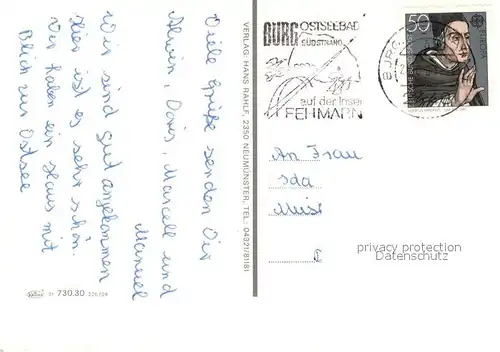 Viele Grüße senden Dir
Alwin, Doris, Marcell und
Manuel
Wir sind gut angekommen
Hier ist es sehr schön.
Wir haben ein Haus mit
Blick zur Ostsee
VERLAG: HANS RAHLF, 2350 NEUMÜNSTER, TEL.: 04321/81181
730.30
BURG OSTSEEBAD
SÜDSTRAND
auf der Insel
FEHMARN
50
EUROPA
An Frau
Ida
privacy protection
Datenschutz